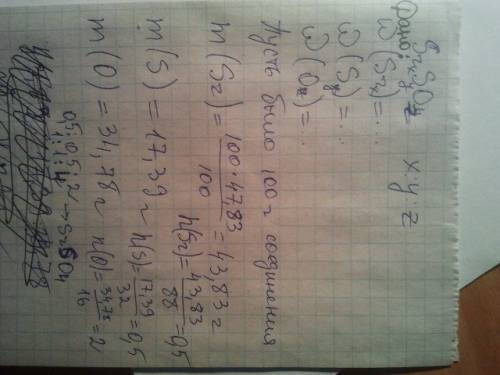 Дано: SrxSyOz x:y:z
ω (Sr) = ...
ω (S) = ...
ω (O) = ..
Пусть было 100 г соединения
m (Sr) = 100·47,83 / 100 = 43,83 г
n(Sr) = 43,83 / 88 = 0,5
m (S) = 17,39 г n(S) = 17,39 / 32 = 0,5
m (O) = 34,78 г n(O) = 34,78 / 16 = 2
0,5:0,5:2 → SrSO4